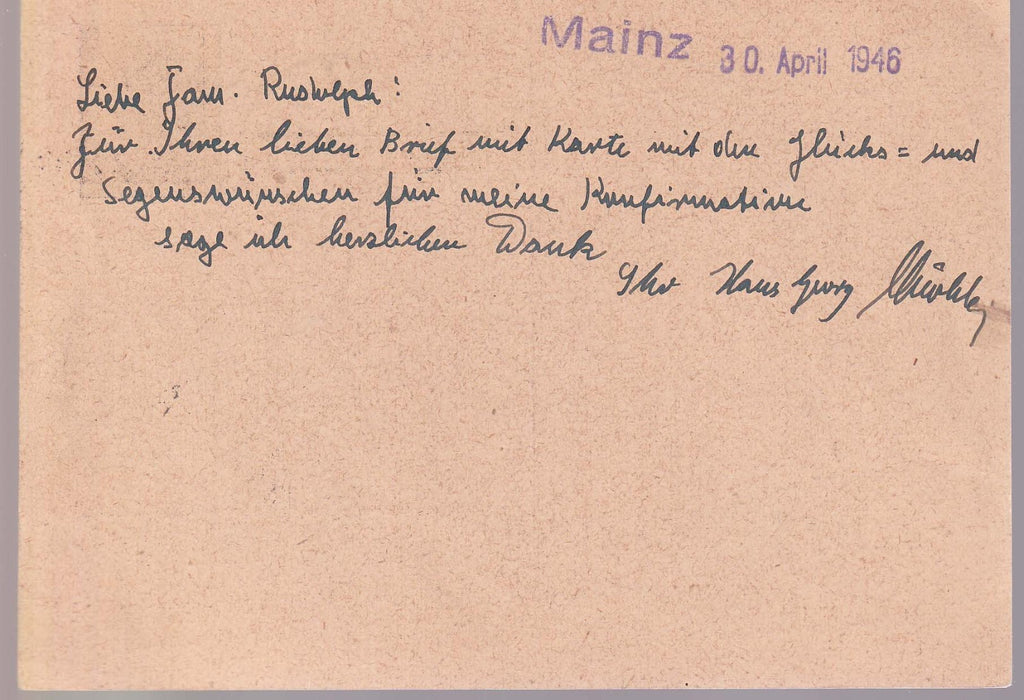 Mainz 30. April 1946
Liebe Fam. Rudolph!
Für Ihren lieben Brief mit Karte mit den Glücks= und
Segenswünschen für meine Konfirmation
sage ich herzlichen Dank
Ihr Hans Georg